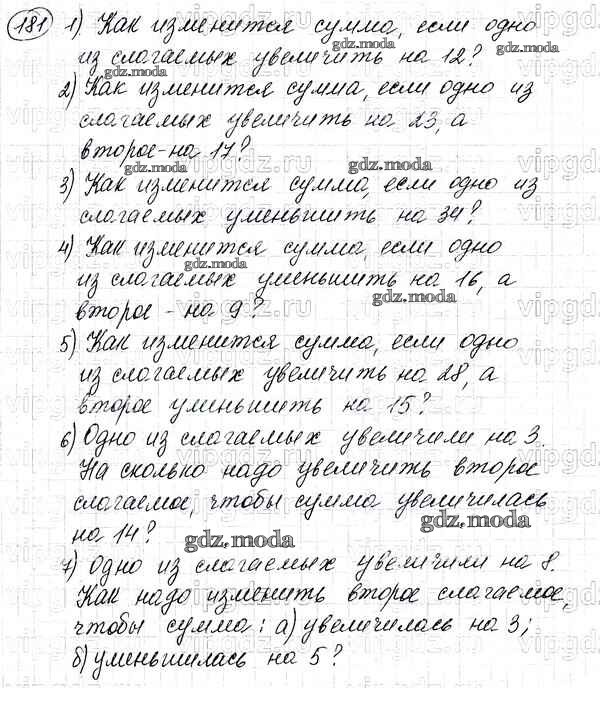 181 1) Как изменится сумма, если одно
из слагаемых увеличить на 12?
2) Как изменится сумма, если одно из
слагаемых увеличить на 23, а
второе - на 17?
3) Как изменится сумма, если одно из
слагаемых уменьшить на 34?
4) Как изменится сумма, если одно
из слагаемых уменьшить на 16, а
второе - на 9?
5) Как изменится сумма, если одно
из слагаемых увеличить на 28, а
второе уменьшить на 15?
6) Одно из слагаемых увеличили на 3.
На сколько надо увеличить второе
слагаемое, чтобы сумма увеличилась
на 14?
7) Одно из слагаемых увеличили на 8.
Как надо изменить второе слагаемое,
чтобы сумма: а) увеличилась на 3;
б) уменьшилась на 5?